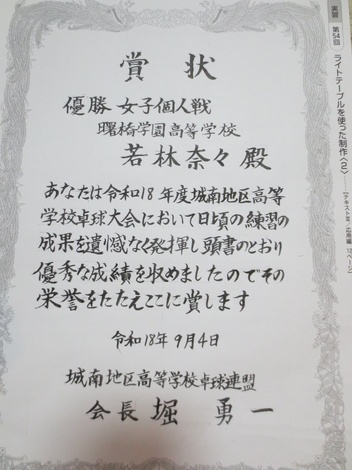 賞状
優勝 女子個人戦
曙橋学園高等学校
若林奈々 殿
あなたは令和18年度城南地区高等
学校卓球大会において日頃の練習の
成果を遺憾なく発揮し頭書のとおり
優秀な成績を収めましたのでその
栄誉をたたえここに賞します
令和18年9月4日
城南地区高等学校卓球連盟
会長 堀 勇一
実習 第54回
ライトテーブルを使った制作〈2〉